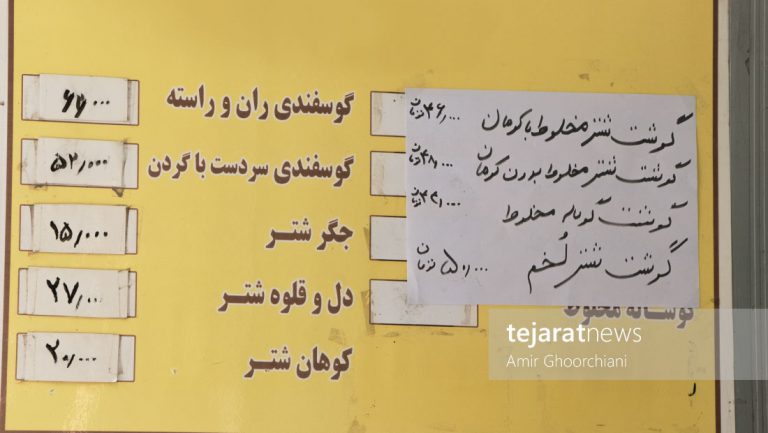 گوشت شتر مخلوط با کوهان ۴۶,۰۰۰ تومان
گوشت شتر مخلوط بدون کوهان ۴۸,۰۰۰ تومان
گوشت گوساله مخلوط ۴۳,۰۰۰ تومان
گوشت شتر لُخم ۵۰,۰۰۰ تومان
گوساله مخلوط
گوسفندی ران و راسته ۶۶۰۰۰
گوسفندی سردست با گردن ۵۲,۰۰۰
جگر شتر ۱۵,۰۰۰
دل و قلوه شتر ۲۷,۰۰۰
کوهان شتر ۲۰,۰۰۰
tejaratnews
Amir Ghoorchiani